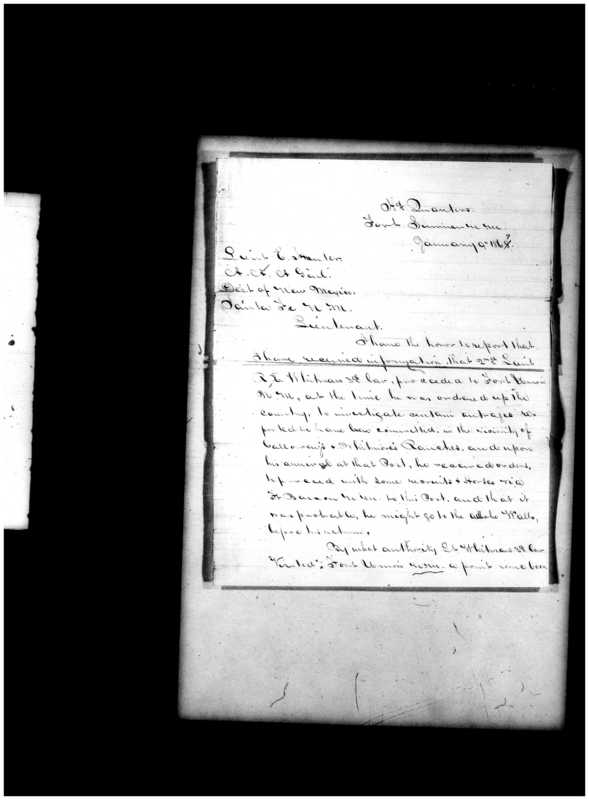 Hd Quarters
Fort Sumner N.M.
January 9th 1868.
Lieut E. Hunter
A. A. A. Genl.
Dist of New Mexico
Santa Fe N. M.
Lieutenant.
I have the honor to report that
I have received information that 2nd Lieut
R. E. Whitman 3d Cav, proceeded to Fort Union
N. M. at the time he was ordered up the
country, to investigate certain outrages re-
ported to have been committed, in the vicinity of
& Whitmore's Ranches, and upon
his arrival at that Post, he received orders,
to proceed with some recruits & Horses via
Ft Bascom N. M. to this Post, and that it
was probable, he might go to the Walls,
before his return.
By what authority Lt Whitman 3d Cav
Visited Fort Union N. M. a point some